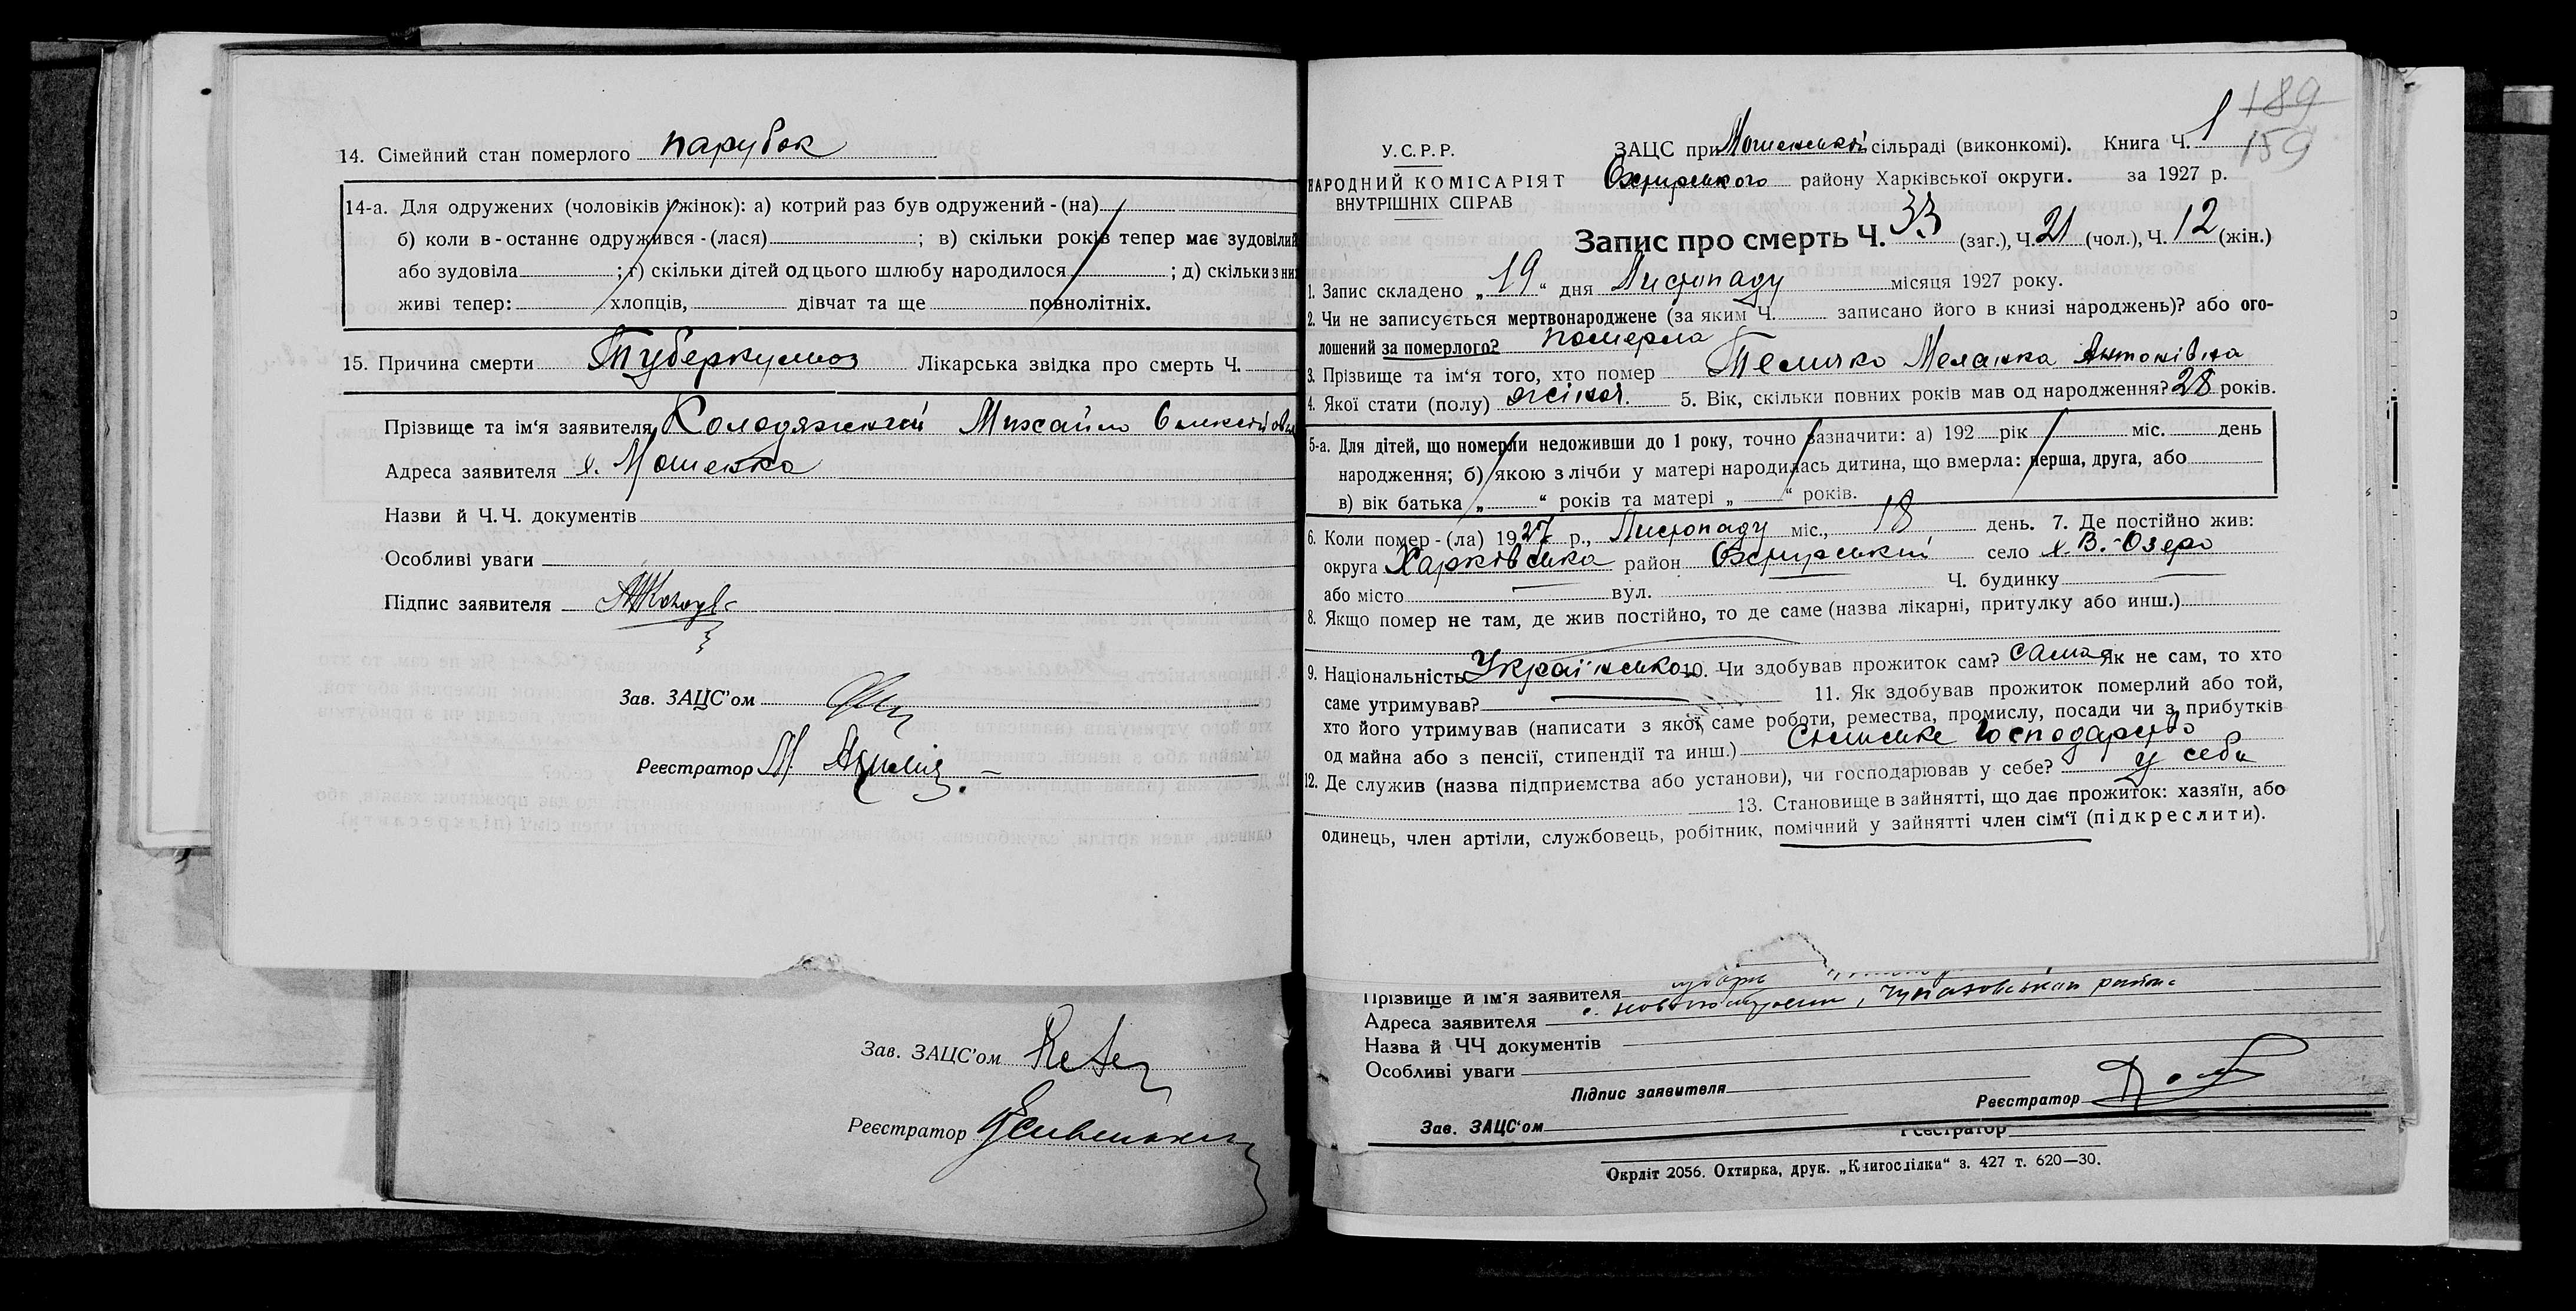 14. Сімейний стан померлого парубок
14-а. Для одружених (чоловіків і жінок): а) котрий раз був одружений-(на)
б) коли в-останнє одружився-(лася) ; в) скільки років тепер має зудовілий
або зудовіла ; г) скільки дітей од цього шлюбу народилося ; д) скільки з них
живі тепер: хлопців, дівчат та ще повнолітніх.
15. Причина смерти Туберкульоз Лікарська звідка про смерть Ч.
Прізвище та ім'я заявителя Колодяжний Михайло Олексійов
Адреса заявителя х. Мошенка
Назви й Ч.Ч. документів
Особливі уваги
Підпис заявителя
Зав. ЗАЦС'ом
Реєстратор М.
Зав. ЗАЦС'ом
Реєстратор
189
159
У.С.Р.Р.
НАРОДНИЙ КОМІСАРІЯТ
ВНУТРІШНІХ СПРАВ
ЗАЦС при Мошенській сільраді (виконкомі). Книга Ч. 1
Охтирського району Харківської округи. за 1927 р.
Запис про смерть Ч. 33 (заг.), Ч. 21 (чол.), Ч. 12 (жін.)
1. Запис складено „19“ дня Листопаду місяця 1927 року.
2. Чи не записується мертвонароджене (за яким Ч. записано його в книзі народжень)? або ого-
лошений за померлого? померла
3. Прізвище та ім'я того, хто помер Теличко Меланка Антонівна
4. Якої стати (полу) жіноч. 5. Вік, скільки повних років мав од народження? 28 років.
5-а. Для дітей, що померли недоживши до 1 року, точно зазначити: а) 192 рік міс. день
народження; б) якою з лічби у матері народилась дитина, що вмерла: перша, друга, або
в) вік батька „ “ років та матері „ “ років.
6. Коли помер-(ла) 1927 р., Листопаду міс., 18 день. 7. Де постійно жив:
округа Харківська район Охтирський село х. В.-Озеро
або місто вул. Ч. будинку
8. Якщо помер не там, де жив постійно, то де саме (назва лікарні, притулку або инш.)
9. Національність Українською 10. Чи здобував прожиток сам? сама Як не сам, то хто
саме утримував? 11. Як здобував прожиток померлий або той,
хто його утримував (написати з якої саме роботи, ремества, промислу, посади чи з прибутків
од майна або з пенсії, стипендії та инш.) Сільське господарство
12. Де служив (назва підприємства або установи), чи господарював у себе? у себе
13. Становище в зайнятті, що дає прожиток: хазяїн, або
одинець, член артіли, службовець, робітник, помічний у зайнятті член сім'ї (підкреслити).
Прізвище й ім'я заявителя
Адреса заявителя
Назва й ЧЧ документів
Особливі уваги
Підпис заявителя
Реєстратор
Зав. ЗАЦС'ом
Реєстратор
Окрліт 2056. Охтирка, друк. „Книгоспілки“ з. 427 т. 620—30.